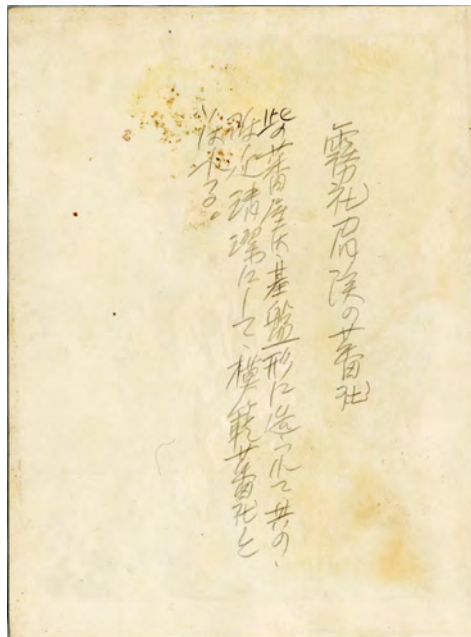 霧社附近の蕃社
此の蕃屋は基盤形に造られて其の
附近清潔にして、模範蕃社と
いはれる。